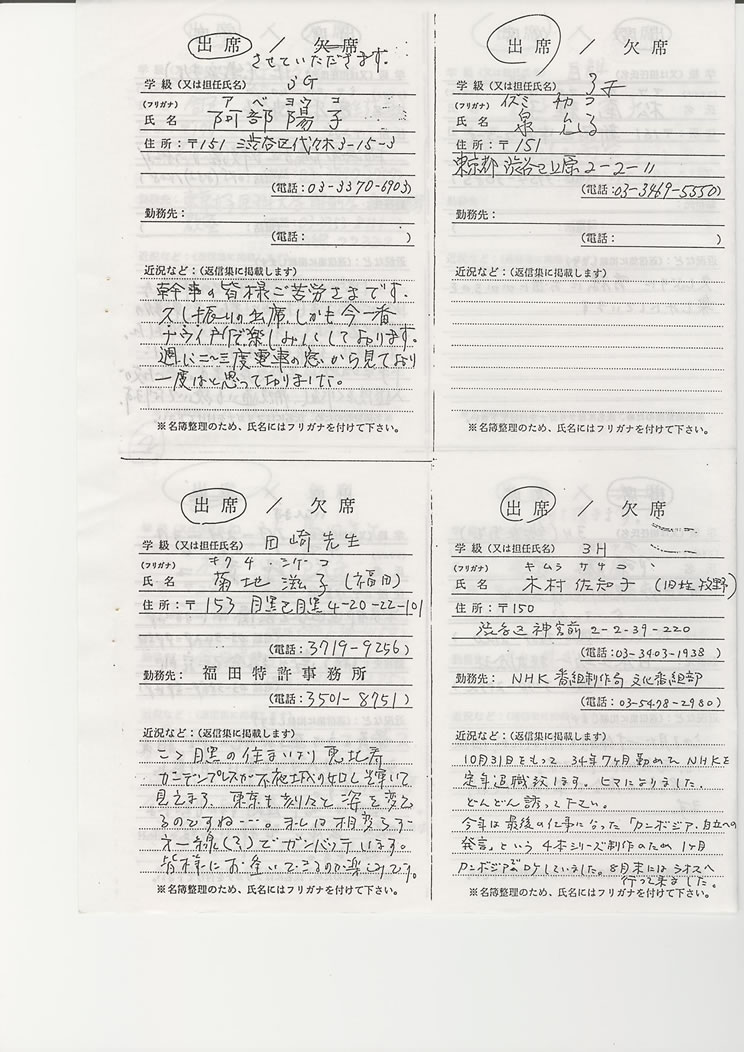 出席 / 欠席
させていただきます。
学級 (又は担任氏名) 3G
(フリガナ) アベ ヨウコ
氏名 阿部陽子
住所:〒151 渋谷区代々木3-15-3
(電話:03-3370-6903)
勤務先:
(電話: )
近況など:(返信集に掲載します)
幹事の皆様ご苦労さまです。
久し振りの出席、しかも今一番
ナウイ所で楽しみにしております。
週に二~三度電車の窓から見ており
一度はと思っておりました。
※名簿整理のため、氏名にはフリガナを付けて下さい。
出席 / 欠席
学級 (又は担任氏名) 3F
(フリガナ) イズミ チカコ
氏名 泉
住所:〒151
東京都渋谷区上原2-2-11
(電話:03-3469-5550)
勤務先:
(電話: )
近況など:(返信集に掲載します)
※名簿整理のため、氏名にはフリガナを付けて下さい。
出席 / 欠席
学級 (又は担任氏名) 田崎先生
(フリガナ) キクチ シゲコ
氏名 菊地滋子(福田)
住所:〒153 目黒区目黒4-20-22-101
(電話:3719-9256)
勤務先: 福田特許事務所
(電話:3501-8751)
近況など:(返信集に掲載します)
ここ目黒の住まいより恵比寿
ガーデンプレスが不夜城の如し輝いて
見えます、東京も刻々と姿を変え
るのですね…。私は相変らず
ネー線(?)でガンバッテいます。
皆様にお逢いできるのが楽しみです。
※名簿整理のため、氏名にはフリガナを付けて下さい。
出席 / 欠席
学級 (又は担任氏名) 3H
(フリガナ) キムラ サチコ
氏名 木村佐知子 (旧姓牧野)
住所:〒150
渋谷区神宮前2-2-39-220
(電話:03-3403-1938)
勤務先: NHK番組制作局 文化番組部
(電話:03-5478-2980)
近況など:(返信集に掲載します)
10月31日をもって34年7ヶ月勤めたNHKを
定年退職致します。ヒマになりました、
どんどん誘って下さい。
今年は最後の仕事になった「カンボジア・自立への
発言」という4本シリーズ制作のため1ヶ月
カンボジアでロケしていました。8月末にはラオスへ
行って来ました。
※名簿整理のため、氏名にはフリガナを付けて下さい。